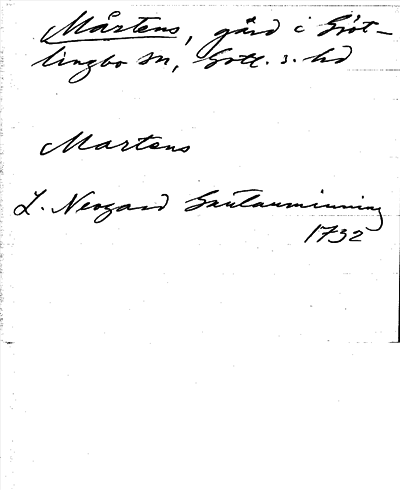 Mårtens, gård i Gröt-
lingbo sn, Gotl. s. hd
Martens
L. Neogard Gautauminning
1732